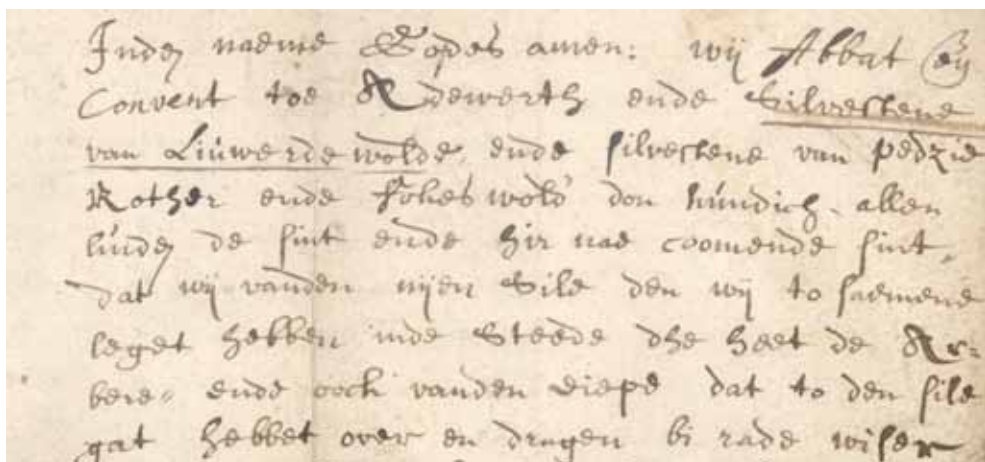 Inden naeme Godes amen: wij Abbat en
Convent toe Adewerth ende Silvestene
van Liuwerdewolde ende silvestene van pedzie
Rother ende Fokeswold don kundich allen
luiden de sint ende hir nae coomende sint,
dat wij vanden nijen Sile den wij to saemene
leget hebben inde Steede dhe heet de Ar-
bere, ende ooch vanden Diepe dat to den sile
gat hebbet over en dragen bi rade wiser